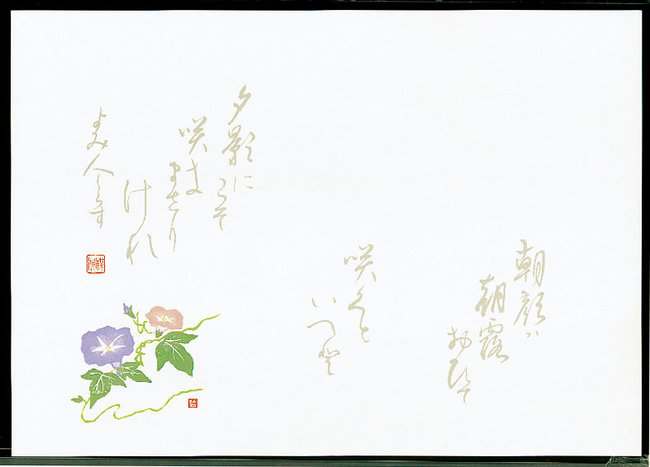 朝顔は
朝露
おひて
咲くと
いへど
夕影に
こそ
咲き
まさり
けれ
よみ人しらず